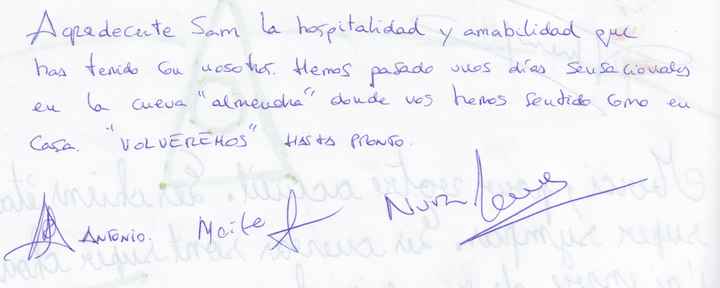 Agradecerte Sam la hospitalidad y amabilidad que
has tenido con nosotros. Hemos pasado unos días sensacionales
en la cueva "almendra" donde nos hemos sentido como en
casa. "VOLVEREMOS" HASTA PRONTO.
ANTONIO. Maite Nuria